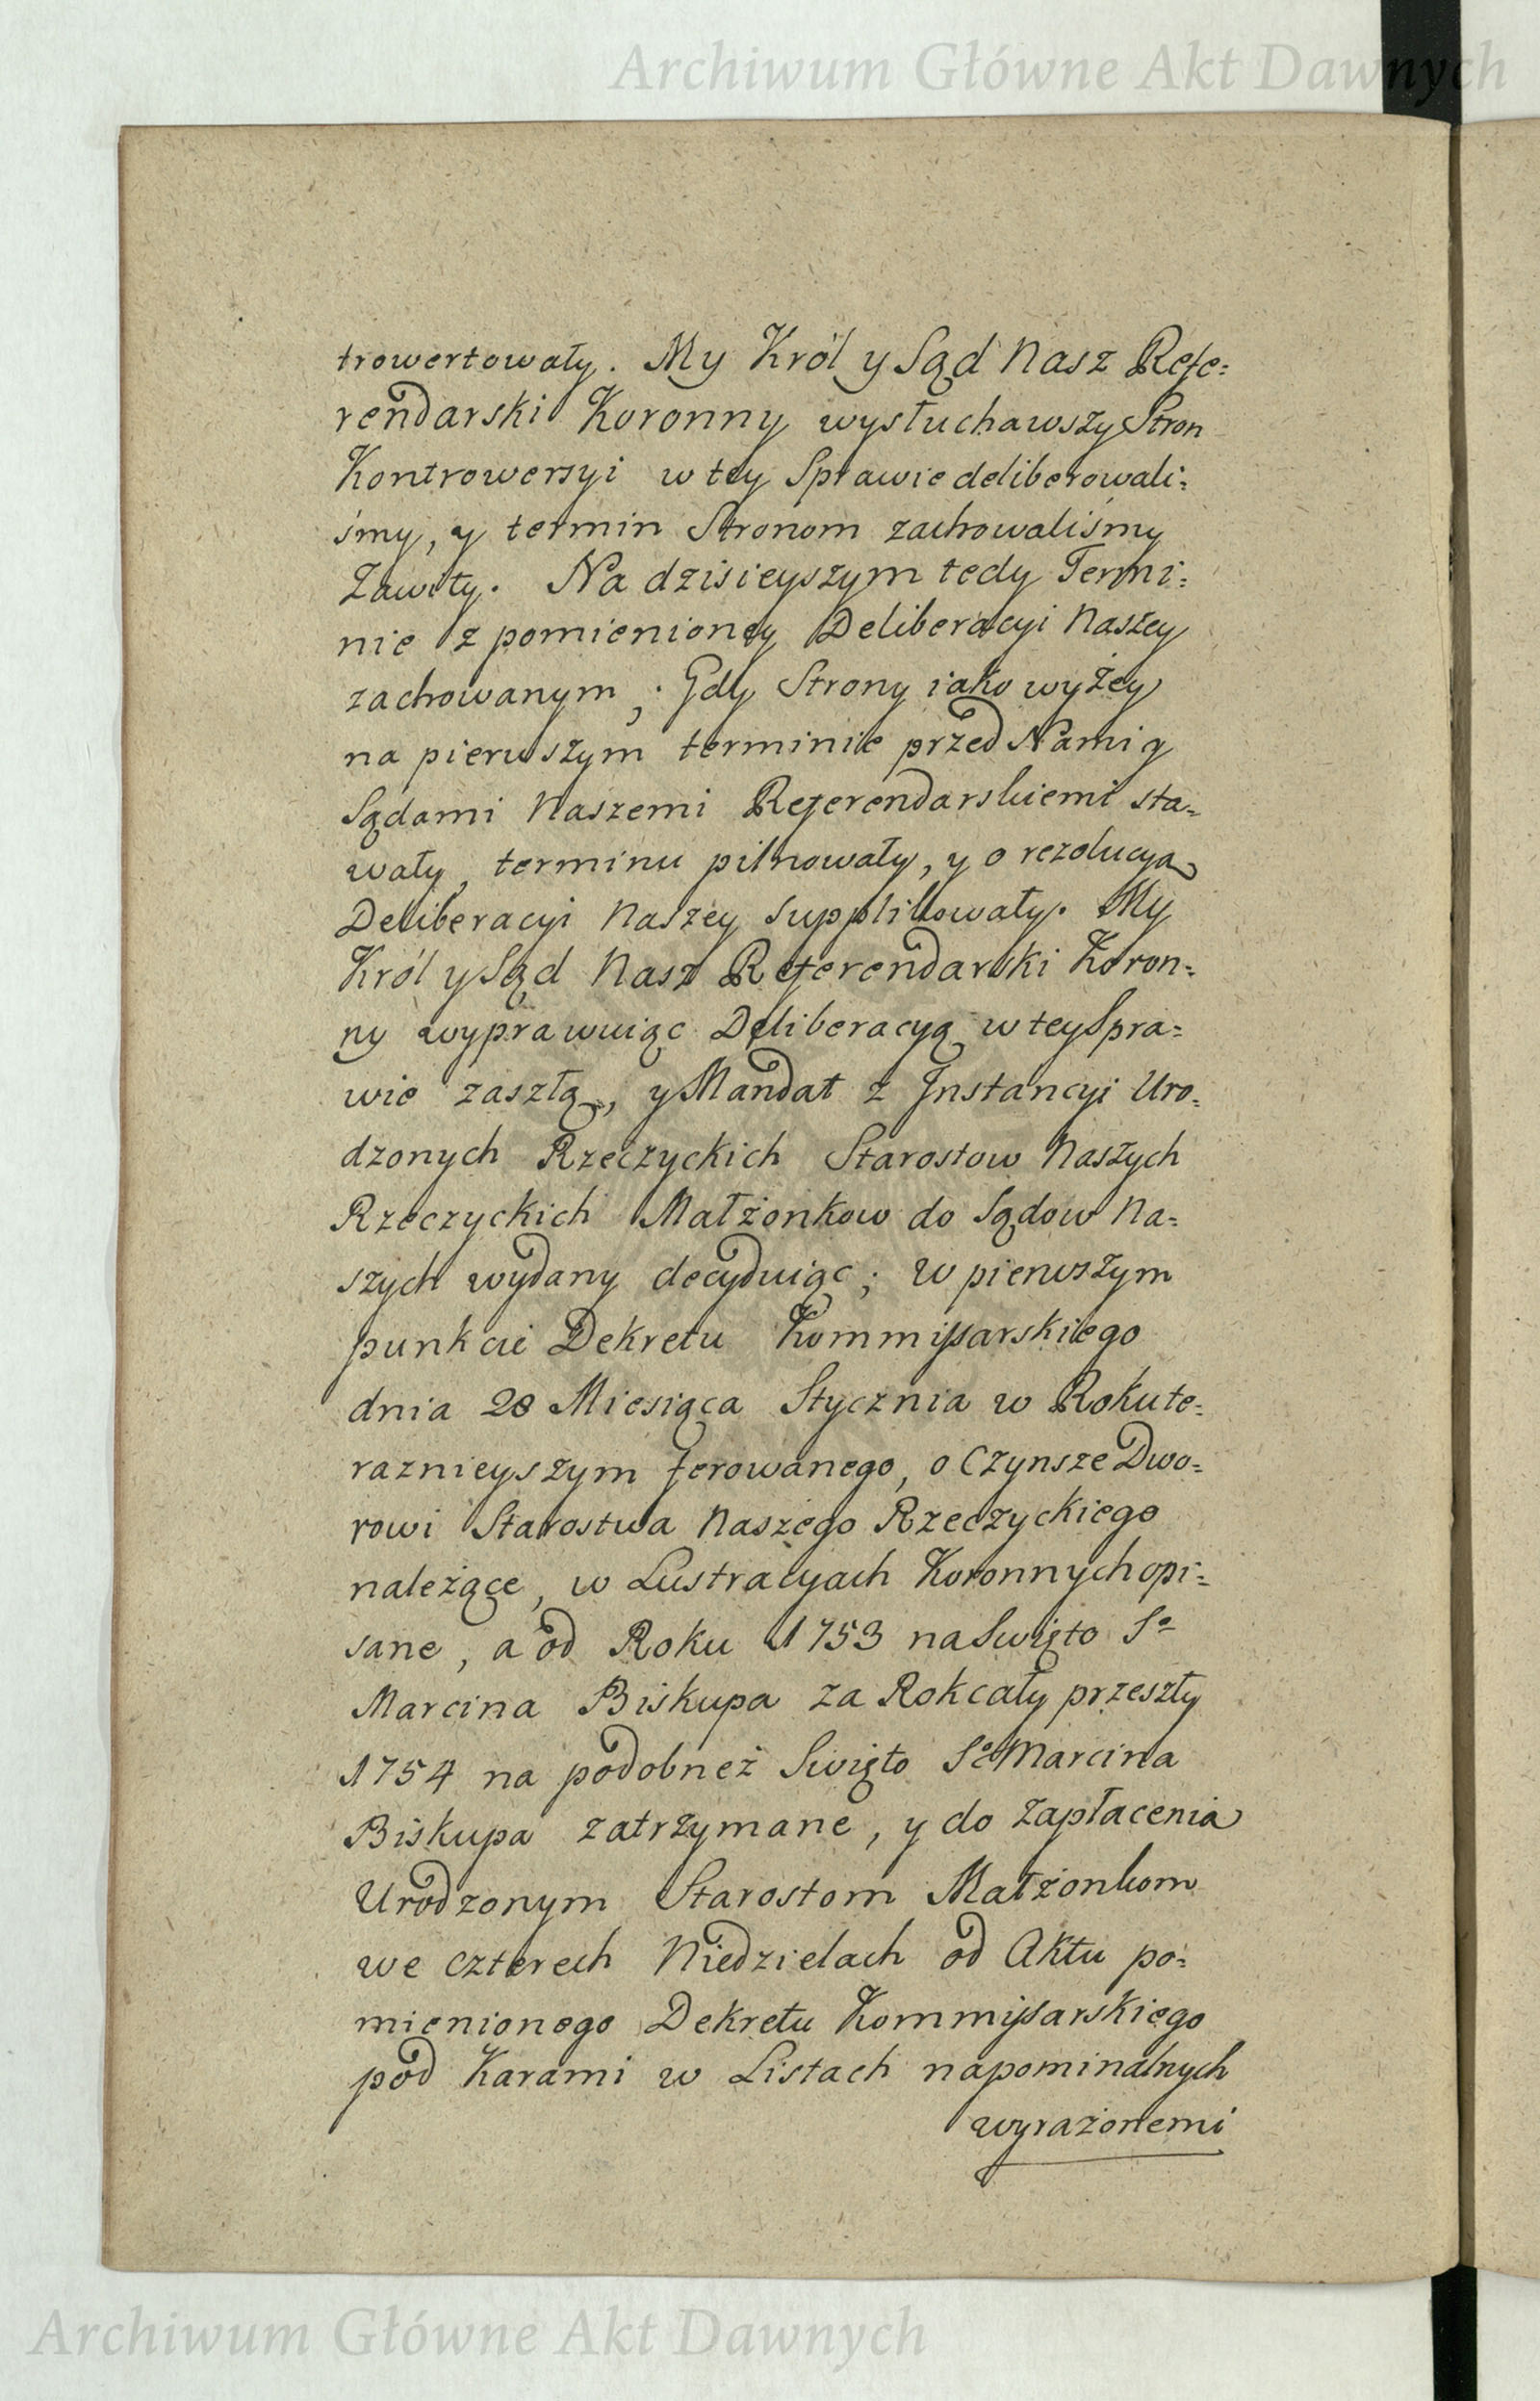 Archiwum Główne Akt Dawnych
trowertowały. My Król y Sąd Nasz Refe=
rendarski Koronny wysłuchawszy Stron
Kontrowersyi w tey Sprawie deliberowali=
śmy, y termin Stronom zachowaliśmy
Zawity. Na dzisieyszym tedy Termi=
nie z pomienioney Deliberacyi Naszey
zachowanym; Gdy Strony iako wyżey
na pierwszym terminie przed Nami y
Sądami Naszemi Referendarskiemi sta=
wały, terminu pilnowały, y o rezolucyą
Deliberacyi Naszey supplikowały. My
Król y Sąd Nasz Referendarski Koron=
ny wyprawuiąc Deliberacyą w tey Spra=
wie zaszłą, y Mandat z Instancyi Uro=
dzonych Rzeczyckich Starostow Naszych
Rzeczyckich Małżonkow do Sądow Na=
szych wydany decyduiąc; w pierwszym
punkcie Dekretu Kommissarskiego
dnia 28 Miesiąca Stycznia w Roku te=
raznieyszym ferowanego, o Czynsze Dwo=
rowi Starostwa Naszego Rzeczyckiego
należące, w Lustracyach Koronnych opi=
sane, a od Roku 1753 na Swięto So
Marcina Biskupa za Rok cały przeszły
1754 na podobneż Swięto So Marcina
Biskupa zatrzymane, y do zapłacenia
Urodzonym Starostom Małżonkom
we czterech Niedzielach od Aktu po=
mienionego Dekretu Kommissarskiego
pod Karami w Listach napominalnych
wyrażonemi
Archiwum Główne Akt Dawnych